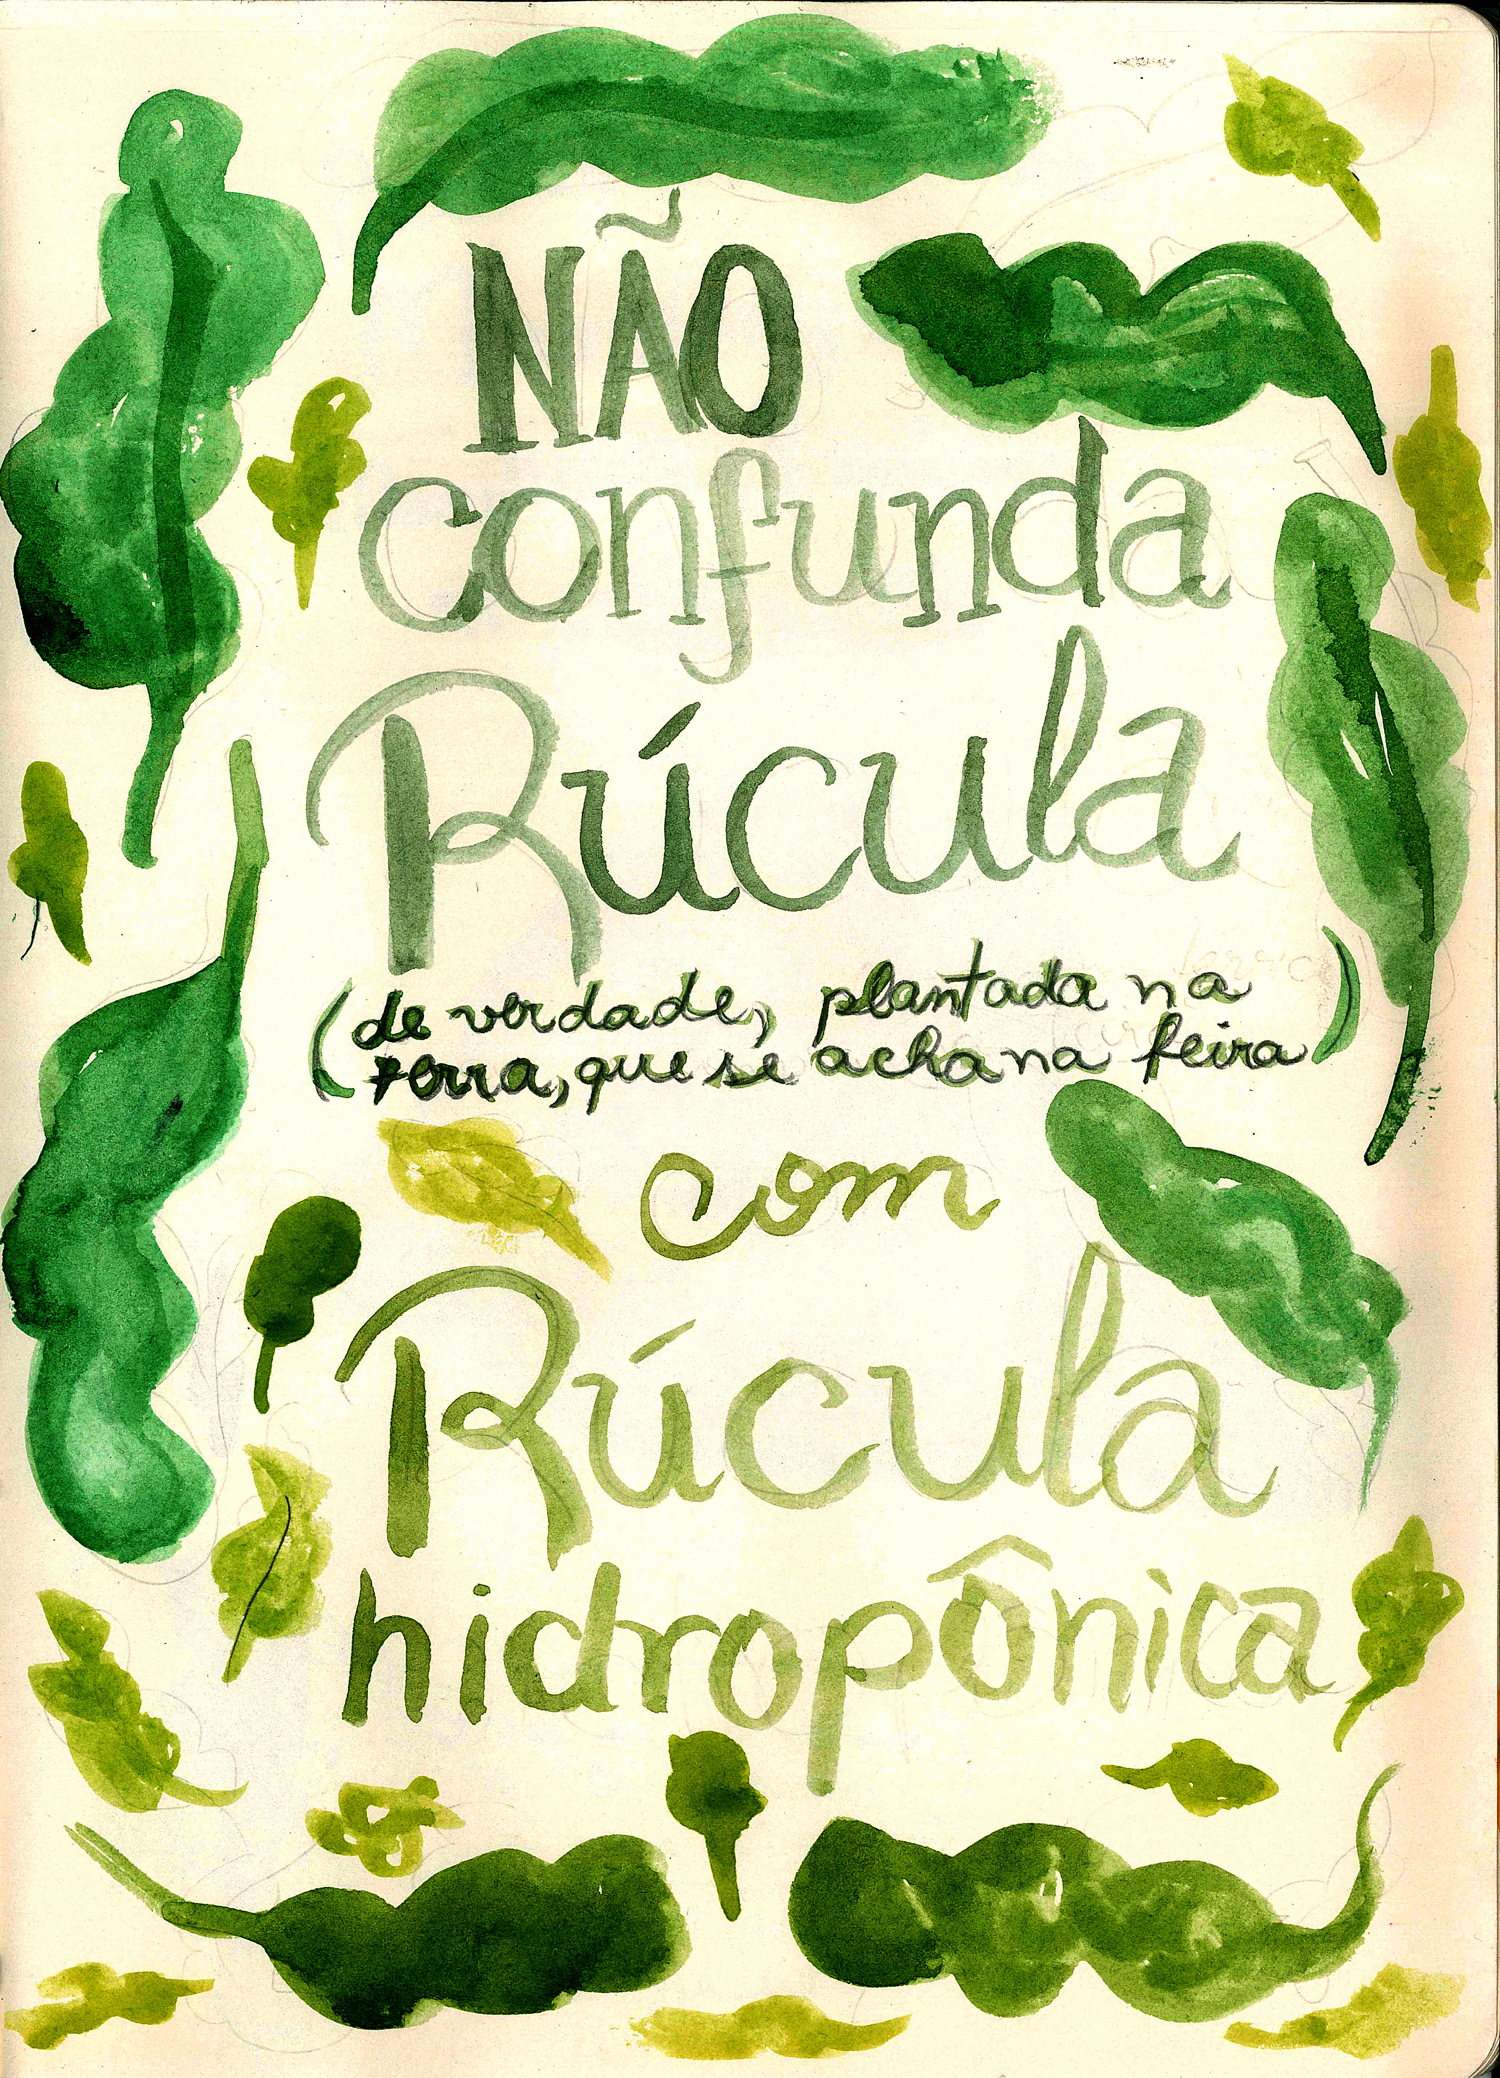 NÃO
confunda
Rúcula
(de verdade, plantada na
terra, que se acha na feira)
com
Rúcula
hidropônica